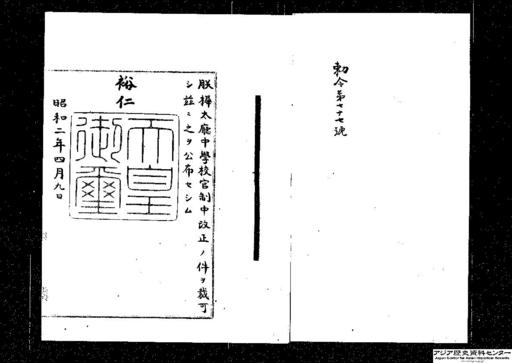 勅令第七十七號
朕樺太廳中學校官制中改正ノ件ヲ裁可
シ玆ニ之ヲ公布セシム
裕仁
天皇御璽
昭和二年四月九日
アジア歴史資料センター
Japan Center for Asian Historical Records